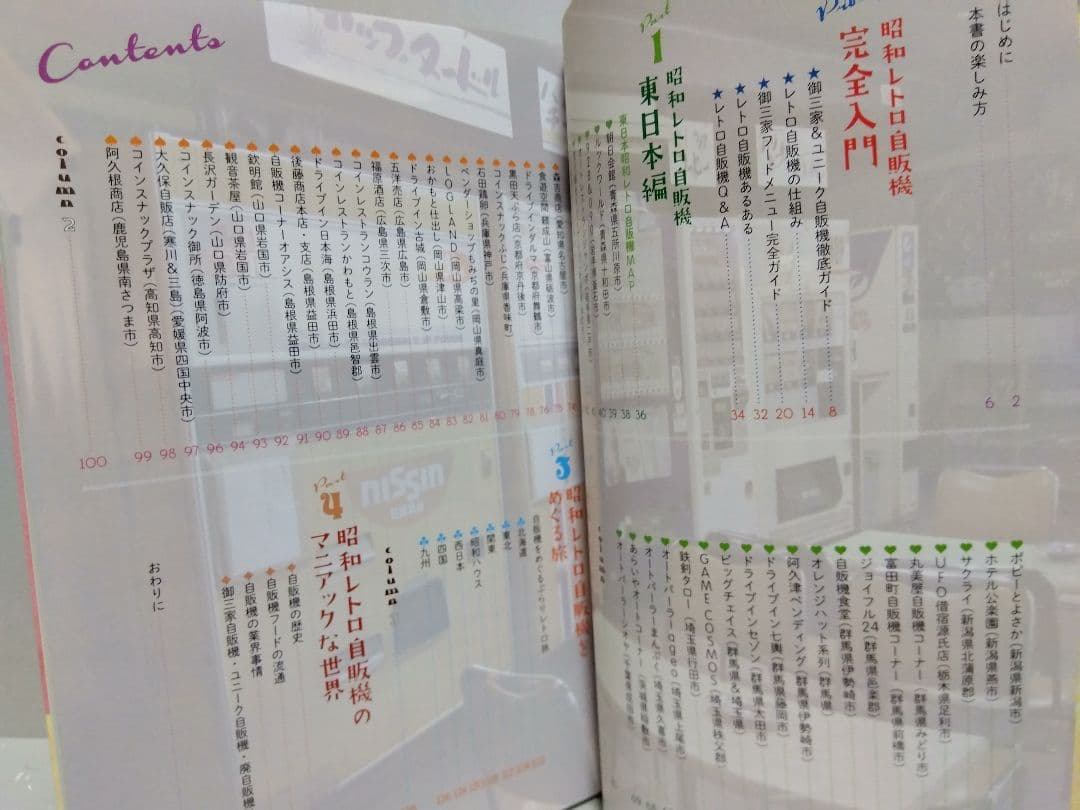 Contents
はじめに 2
本書の楽しみ方 6
昭和レトロ自販機
完全入門
★御三家&ユニーク自販機徹底ガイド 8
★レトロ自販機の仕組み 14
★御三家フードメニュー完全ガイド 20
★レトロ自販機あるある 32
★レトロ自販機Q&A 34
Part
1
昭和レトロ自販機
東日本編
東日本昭和レトロ自販機MAP 36
朝日会館(青森県五所川原市) 38
ポピーとよさか(新潟県新潟市)
ホテル公楽園(新潟県燕市)
サクライ(新潟県北蒲原郡)
UFO借宿源氏店(栃木県足利市)
丸美屋自販機コーナー(群馬県みどり市)
富田町自販機コーナー(群馬県前橋市)
ジョイフル24(群馬県邑楽郡)
自販機食堂(群馬県伊勢崎市)
オレンジハット系列(群馬県)
阿久津ベンディング(群馬県伊勢崎市)
ドライブイン七輿(群馬県藤岡市)
ドライブインセゾン(群馬県太田市)
ビッグチェイス(群馬県&埼玉県)
GAMECOSMOS(埼玉県秩父郡)
鉄剣タロー(埼玉県行田市)
オートパーラーageo(埼玉県上尾市)
オートパーラーまんぷく(埼玉県久喜市)
あらいやオートコーナー(茨城県稲敷市)
column
食遊空間 頼成山(富山県砺波市) 76
ドライブインダルマ(京都府舞鶴市) 78
黒田天ぷら店(京都府京丹後市) 79
コインスナックふじ(兵庫県香味町) 80
石田鶏卵(兵庫県神戸市) 81
ベンダーショップもみぢの里(岡山県真庭市) 82
LOGLAND(岡山県高梁市) 83
おかもと仕出し(岡山県津山市) 84
ドライブイン古城(岡山県倉敷市) 85
五洋売店(広島県広島市) 86
福原酒店(広島県三次市) 87
コインレストランコウラン(島根県出雲市) 88
コインレストランかわもと(島根県邑智郡) 89
ドライブイン日本海(島根県浜田市) 90
後藤商店本店・支店(島根県益田市) 91
自販機コーナーオアシス(島根県益田市) 92
欽明館(山口県岩国市) 93
観音茶屋(山口県岩国市) 94
長沢ガーデン(山口県防府市) 96
コインスナック御所(徳島県阿波市) 97
大久保自販店(寒川&三島)(愛媛県四国中央市) 98
コインスナックプラザ(高知県高知市) 99
阿久根商店(鹿児島県南さつま市) 100
column 2
Part
3
昭和レトロ自販機を
めぐる旅
北海道
東北
関東
昭和ハウス
西日本
四国
九州
column
Part
4
昭和レトロ自販機の
マニアックな世界
自販機の歴史
自販機フードの流通
自販機の業界事情
御三家自販機・ユニーク自販機・廃自販機
おわりに
NISSIN